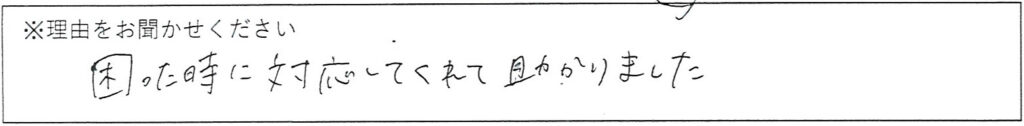 ※理由をお聞かせください
困った時に対応してくれて助かりました